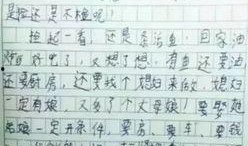 是捡还是不捡呢！
捡起一看，还是条活鱼！回家油
炸好吃了，又想了想：有鱼还要油
还要厨房，还要找个媳妇来做，媳妇
一定有娘，又多了个丈母娘！要娶她
姑娘一定开条件，要房、要车、要钱